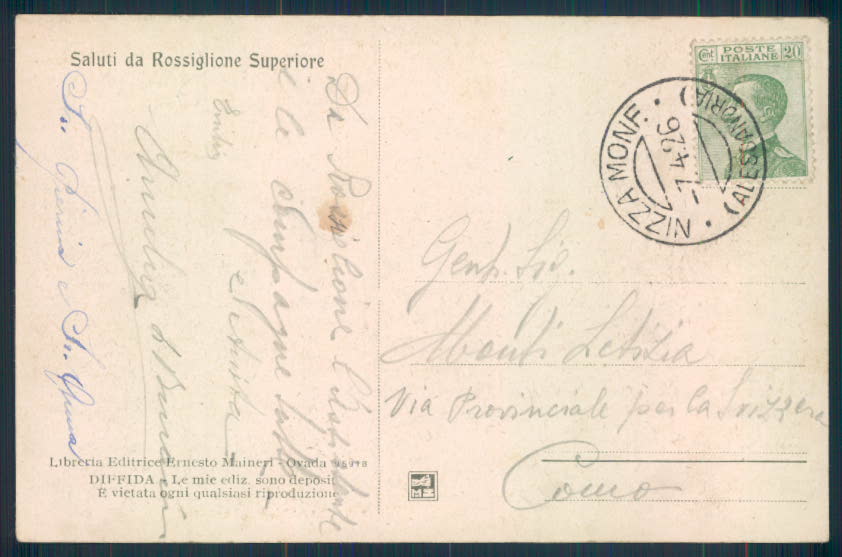 Saluti da Rossiglione Superiore
Da Rossiglione l'Aspirante
e le compagne tutte
Emilia
Sr. Pierina e Sr. Anna
Libreria Editrice Ernesto Maineri - Ovada 95978
DIFFIDA - Le mie ediz. sono deposit
È vietata ogni qualsiasi riproduzione
Cent POSTE ITALIANE 20
NIZZA MONF. (ALESSANDRIA)
7.4.26
Gent. Sig.
Monti Letizia
Via Provinciale per la Svizzera
Como